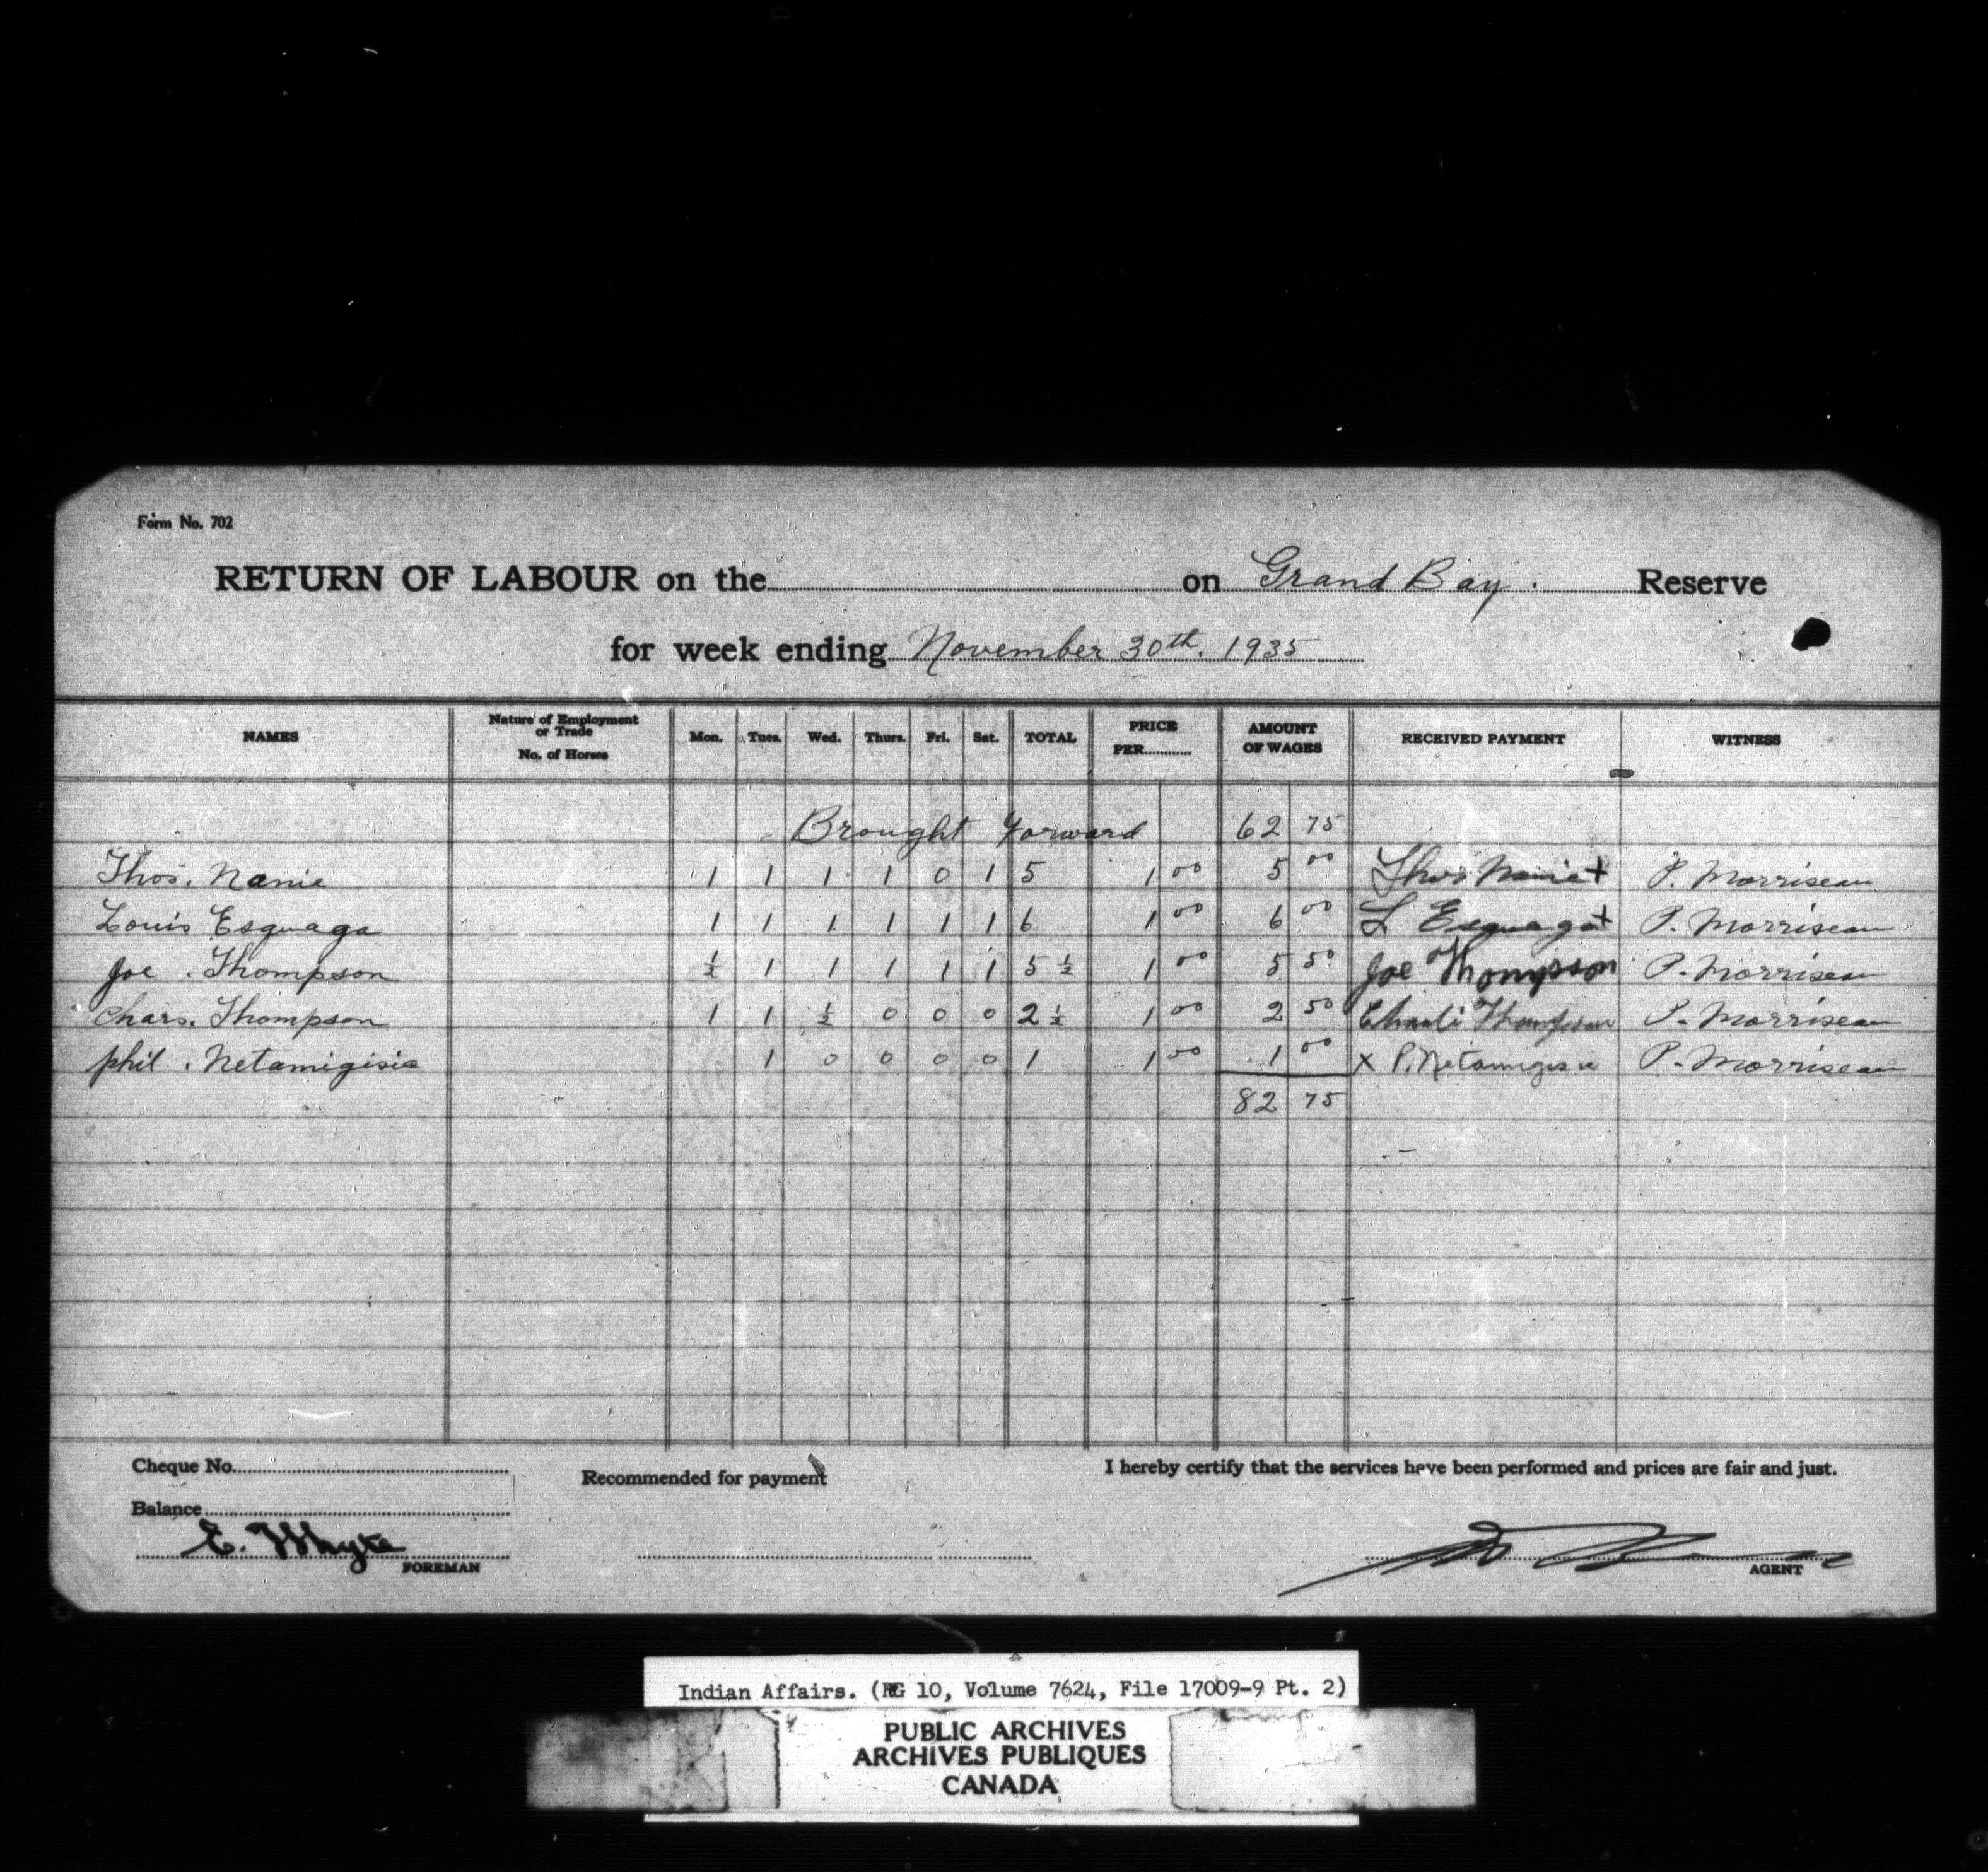 Form No. 702
RETURN OF LABOUR on the on Grand Bay. Reserve
for week ending November 30th. 1935
NAMES Nature of Employment or Trade No. of Horses Mon. Tues. Wed. Thurs. Fri. Sat. TOTAL PRICE PER AMOUNT OF WAGES RECEIVED PAYMENT WITNESS
Brought Forward 62 75
Thos. Nanie 1 1 1 1 0 1 5 1 00 5 00 Thos Nanie + P. Morriseau
Louis Esquaga 1 1 1 1 1 1 6 1 00 6 00 L Esquaga + P. Morriseau
Joe. Thompson ½ 1 1 1 1 1 5 ½ 1 00 5 50 Joe Thompson P. Morriseau
Chars. Thompson 1 1 ½ 0 0 0 2 ½ 1 00 2 50 Charli Thompson P. Morriseau
phil. Netamigisie 1 0 0 0 0 1 1 00 1 00 x P. Netamigisie P. Morriseau
82 75
Cheque No.
Recommended for payment
I hereby certify that the services have been performed and prices are fair and just.
Balance
E. Whyte
FOREMAN
AGENT
Indian Affairs. (RG 10, Volume 7624, File 17009-9 Pt. 2)
PUBLIC ARCHIVES
ARCHIVES PUBLIQUES
CANADA